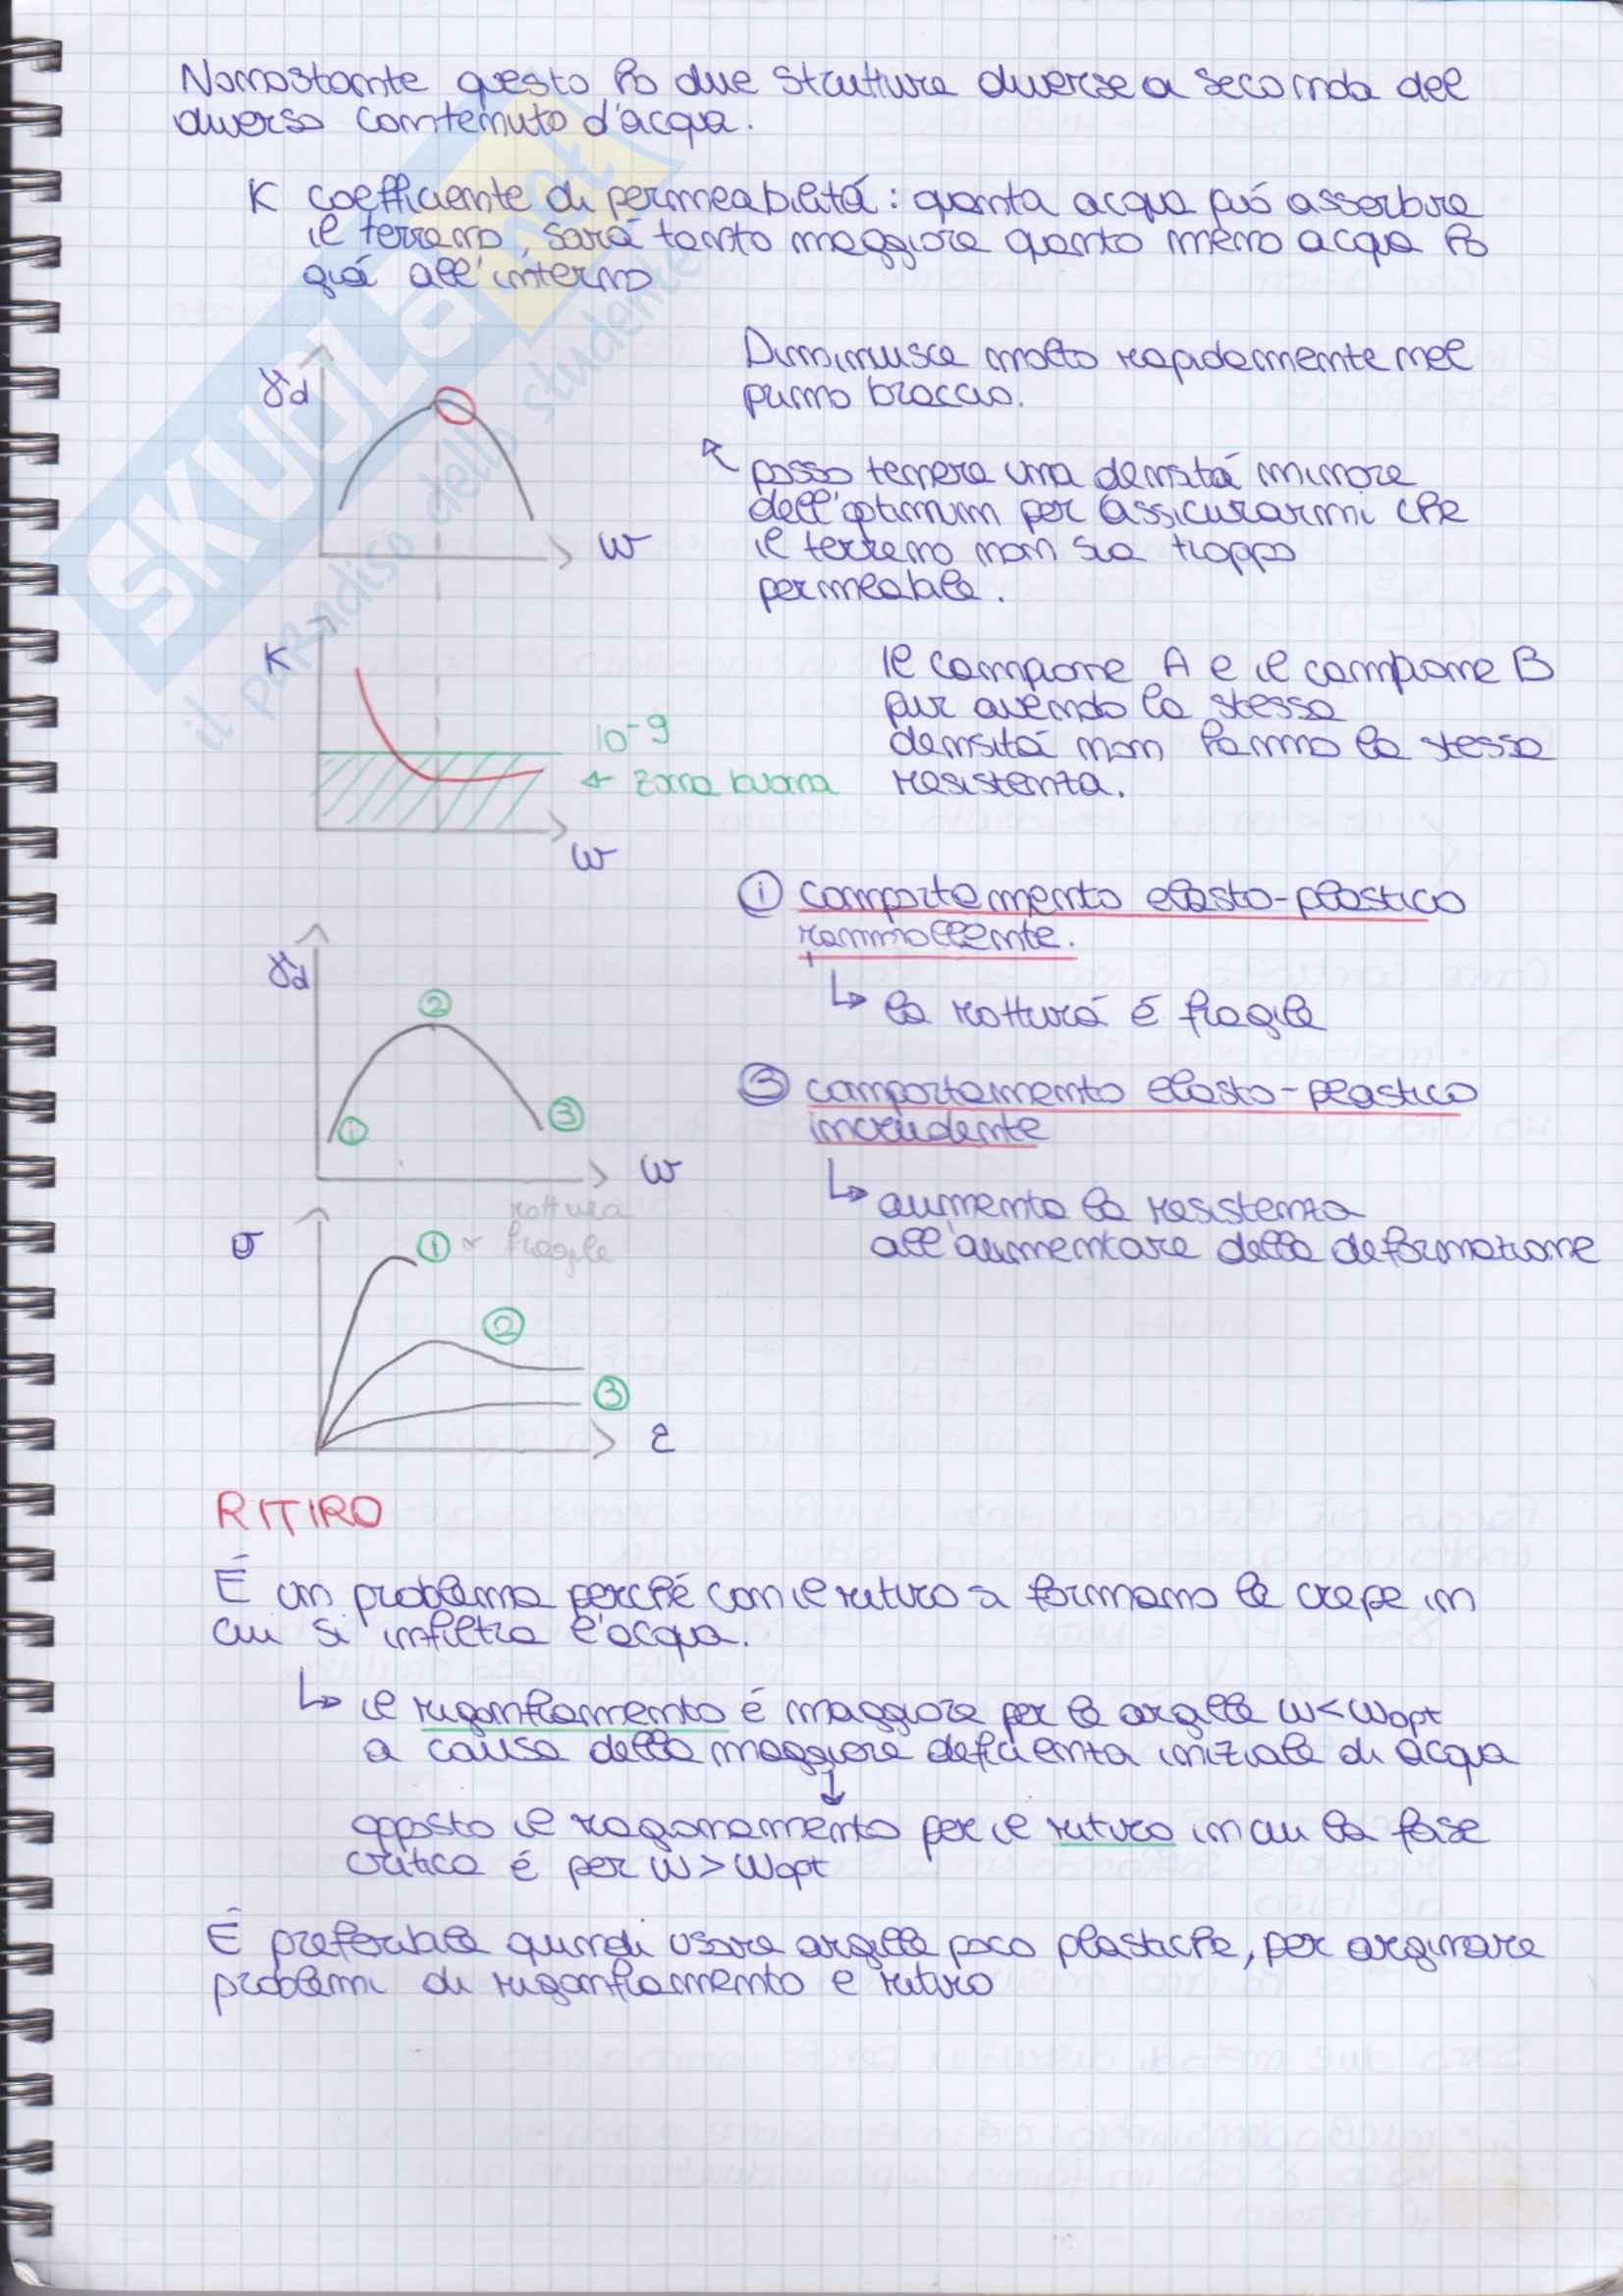 Nonostante questo ho due strutture diverse a seconda del
diverso contenuto d'acqua.
K coefficiente di permeabilitá: quanta acqua puó assorbire
il terreno, sará tanto maggiore quanto meno acqua ho
giá all'interno
γd
w
Diminuisce molto rapidamente nel
primo braccio.
posso tenere una densitá minore
dell'optimum per assicurarmi che
il terreno non sia troppo
permeabile.
K
10⁻⁹
← zona buona
w
Il campione A e il campione B
pur avendo la stessa
densitá non hanno la stessa
resistenza.
① comportamento elasto-plastico
rammollente.
↳ la rotturá é fragile
γd
②
①
③
w
③ comportamento elasto-plastico
incrudente
↳ aumenta la resistenza
all'aumentare della deformazione
σ
① ← rottura
fragile
②
③
ε
RITIRO
É un problema perché con il ritiro si formano le crepe in
cui si infiltra l'acqua.
↳ il rigonfiamento é maggiore per le argille w<wopt
a causa della maggiore deficienza iniziale di acqua
↓
opposto il ragionamento per il ritiro in cui la fase
critica é per w>wopt
É preferibile quindi usare argille poco plastiche, per arginare
problemi di rigonfiamento e ritiro
SKUOLA.net
il paradiso dello studente